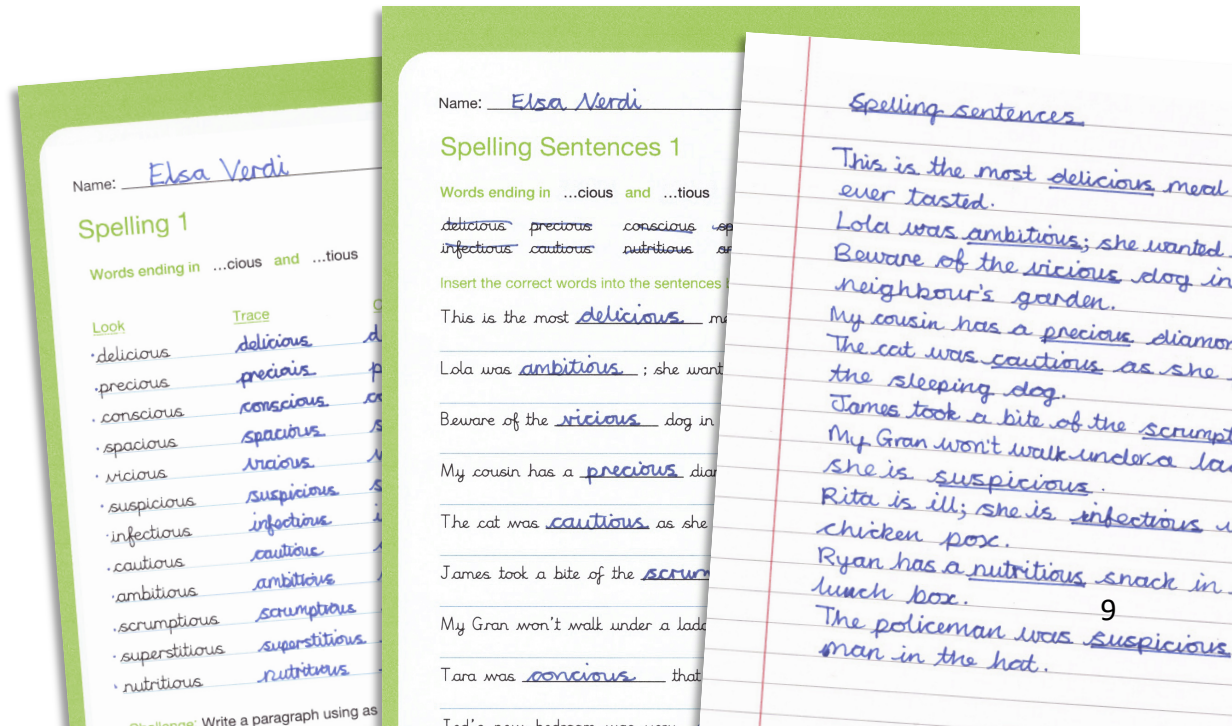 Name: Elsa Verdi
Spelling 1
Words ending in ...cious and ...tious
Look Trace
delicious delicious
precious precious
conscious conscious
spacious spacious
vicious vicious
suspicious suspicious
infectious infectious
cautious cautious
ambitious ambitious
scrumptious scrumptious
superstitious superstitious
nutritious nutritious
Challenge: Write a paragraph using as
Name: Elsa Verdi
Spelling Sentences 1
Words ending in ...cious and ...tious
delicious precious conscious sp
infectious cautious nutritious
Insert the correct words into the sentences
This is the most delicious me
Lola was ambitious ; she want
Beware of the vicious dog in
My cousin has a precious diam
The cat was cautious as she
James took a bite of the scrum
My Gran won't walk under a ladd
Tara was concious that
Ted's new bedroom was very
Spelling sentences
This is the most delicious meal
ever tasted.
Lola was ambitious; she wanted
Beware of the vicious dog in
neighbour's garden.
My cousin has a precious diamon
The cat was cautious as she
the sleeping dog.
James took a bite of the scrumpt
My Gran won't walk under a la
she is suspicious.
Rita is ill; she is infectious
chicken pox.
Ryan has a nutritious snack in
lunch box.
The policeman was suspicious
man in the hat.
9